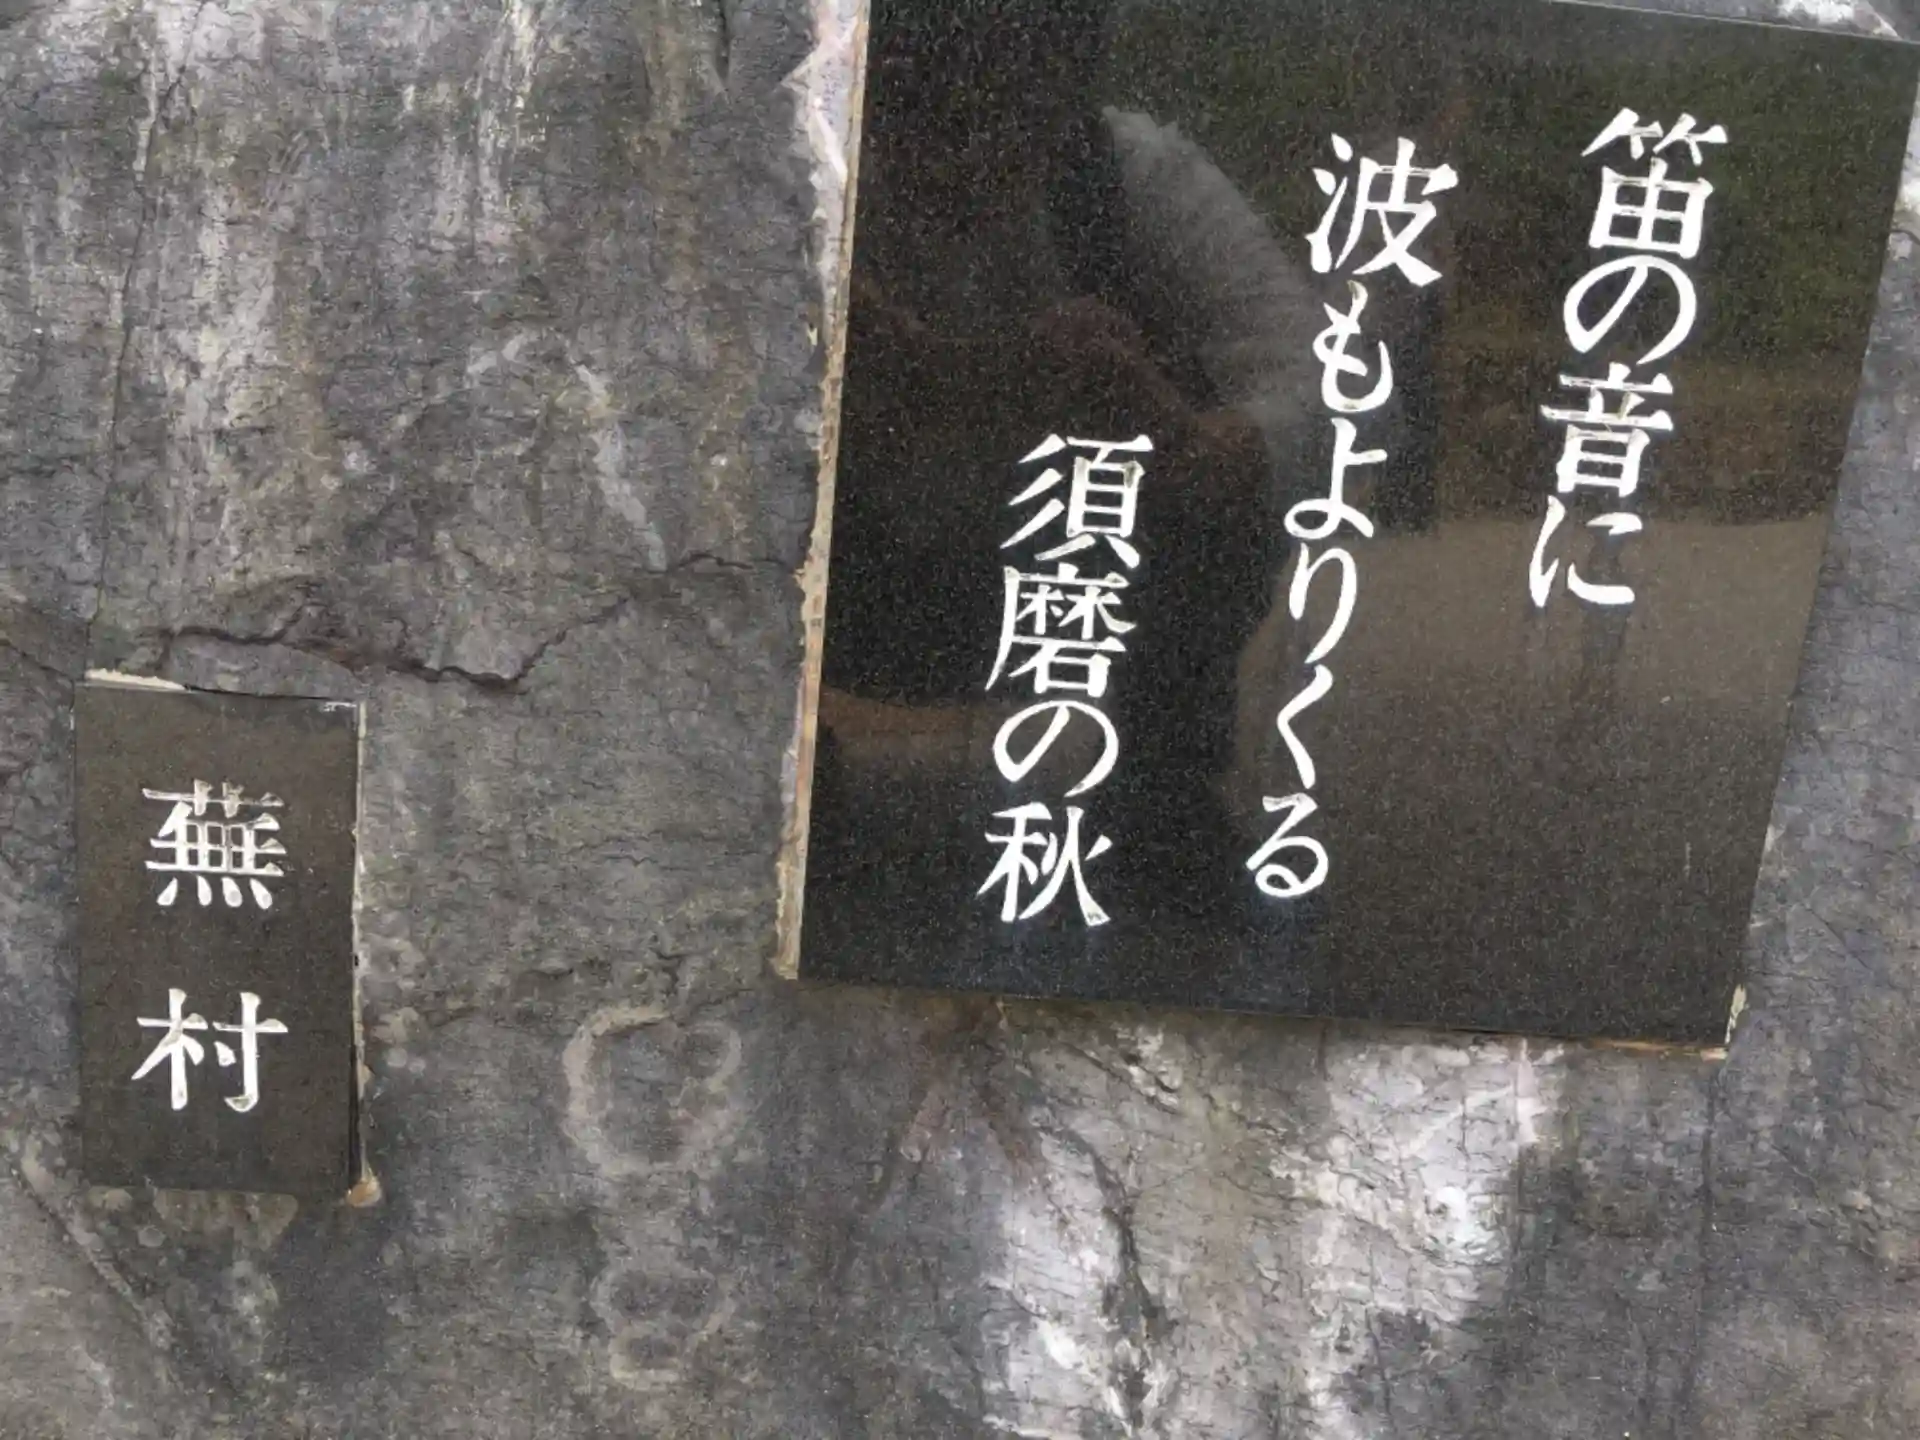 笛の音に
波もよりくる
須磨の秋
蕪村